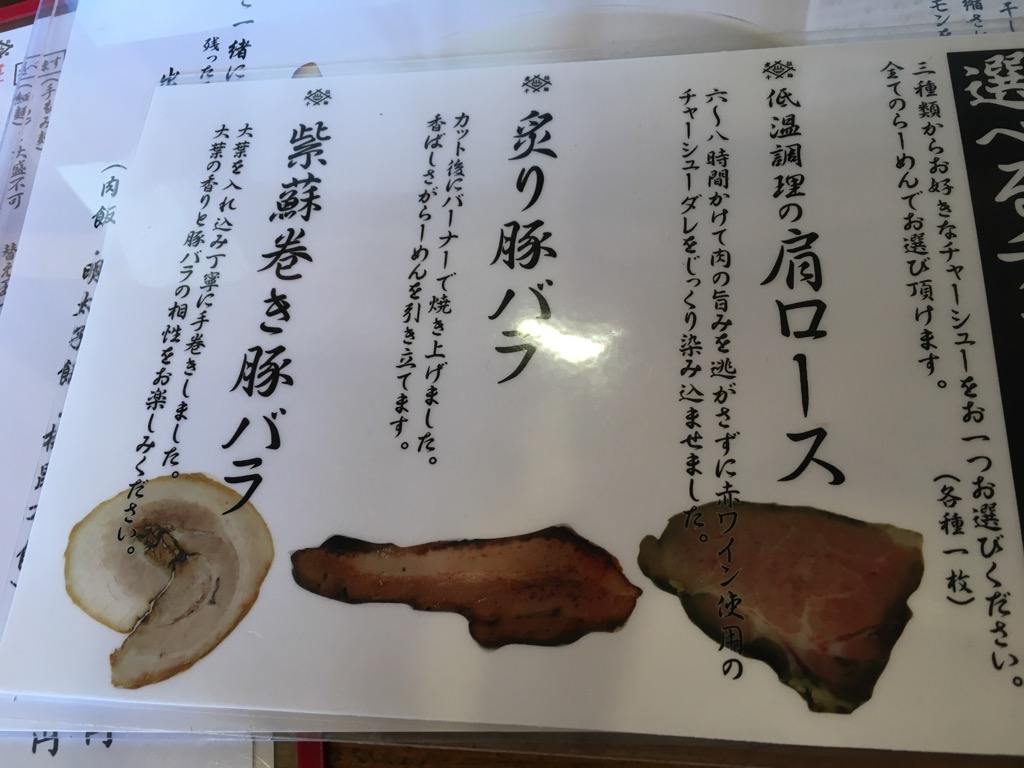 選べるチ
三種類からお好きなチャーシューをお一つお選びください。
(各種一枚)
全てのらーめんでお選び頂けます。
低温調理の肩ロース
六〜八時間かけて肉の旨みを逃がさずに赤ワイン使用の
チャーシューダレをじっくり染み込ませました。
炙り豚バラ
カット後にバーナーで焼き上げました。
香ばしさがらーめんを引き立てます。
紫蘇巻き豚バラ
大葉を入れ込み丁寧に手巻きしました。
大葉の香りと豚バラの相性をお楽しみください。
と一緒に
残った
(肉飯・明太子飯
(細麺)大盛不可
替え
円
円